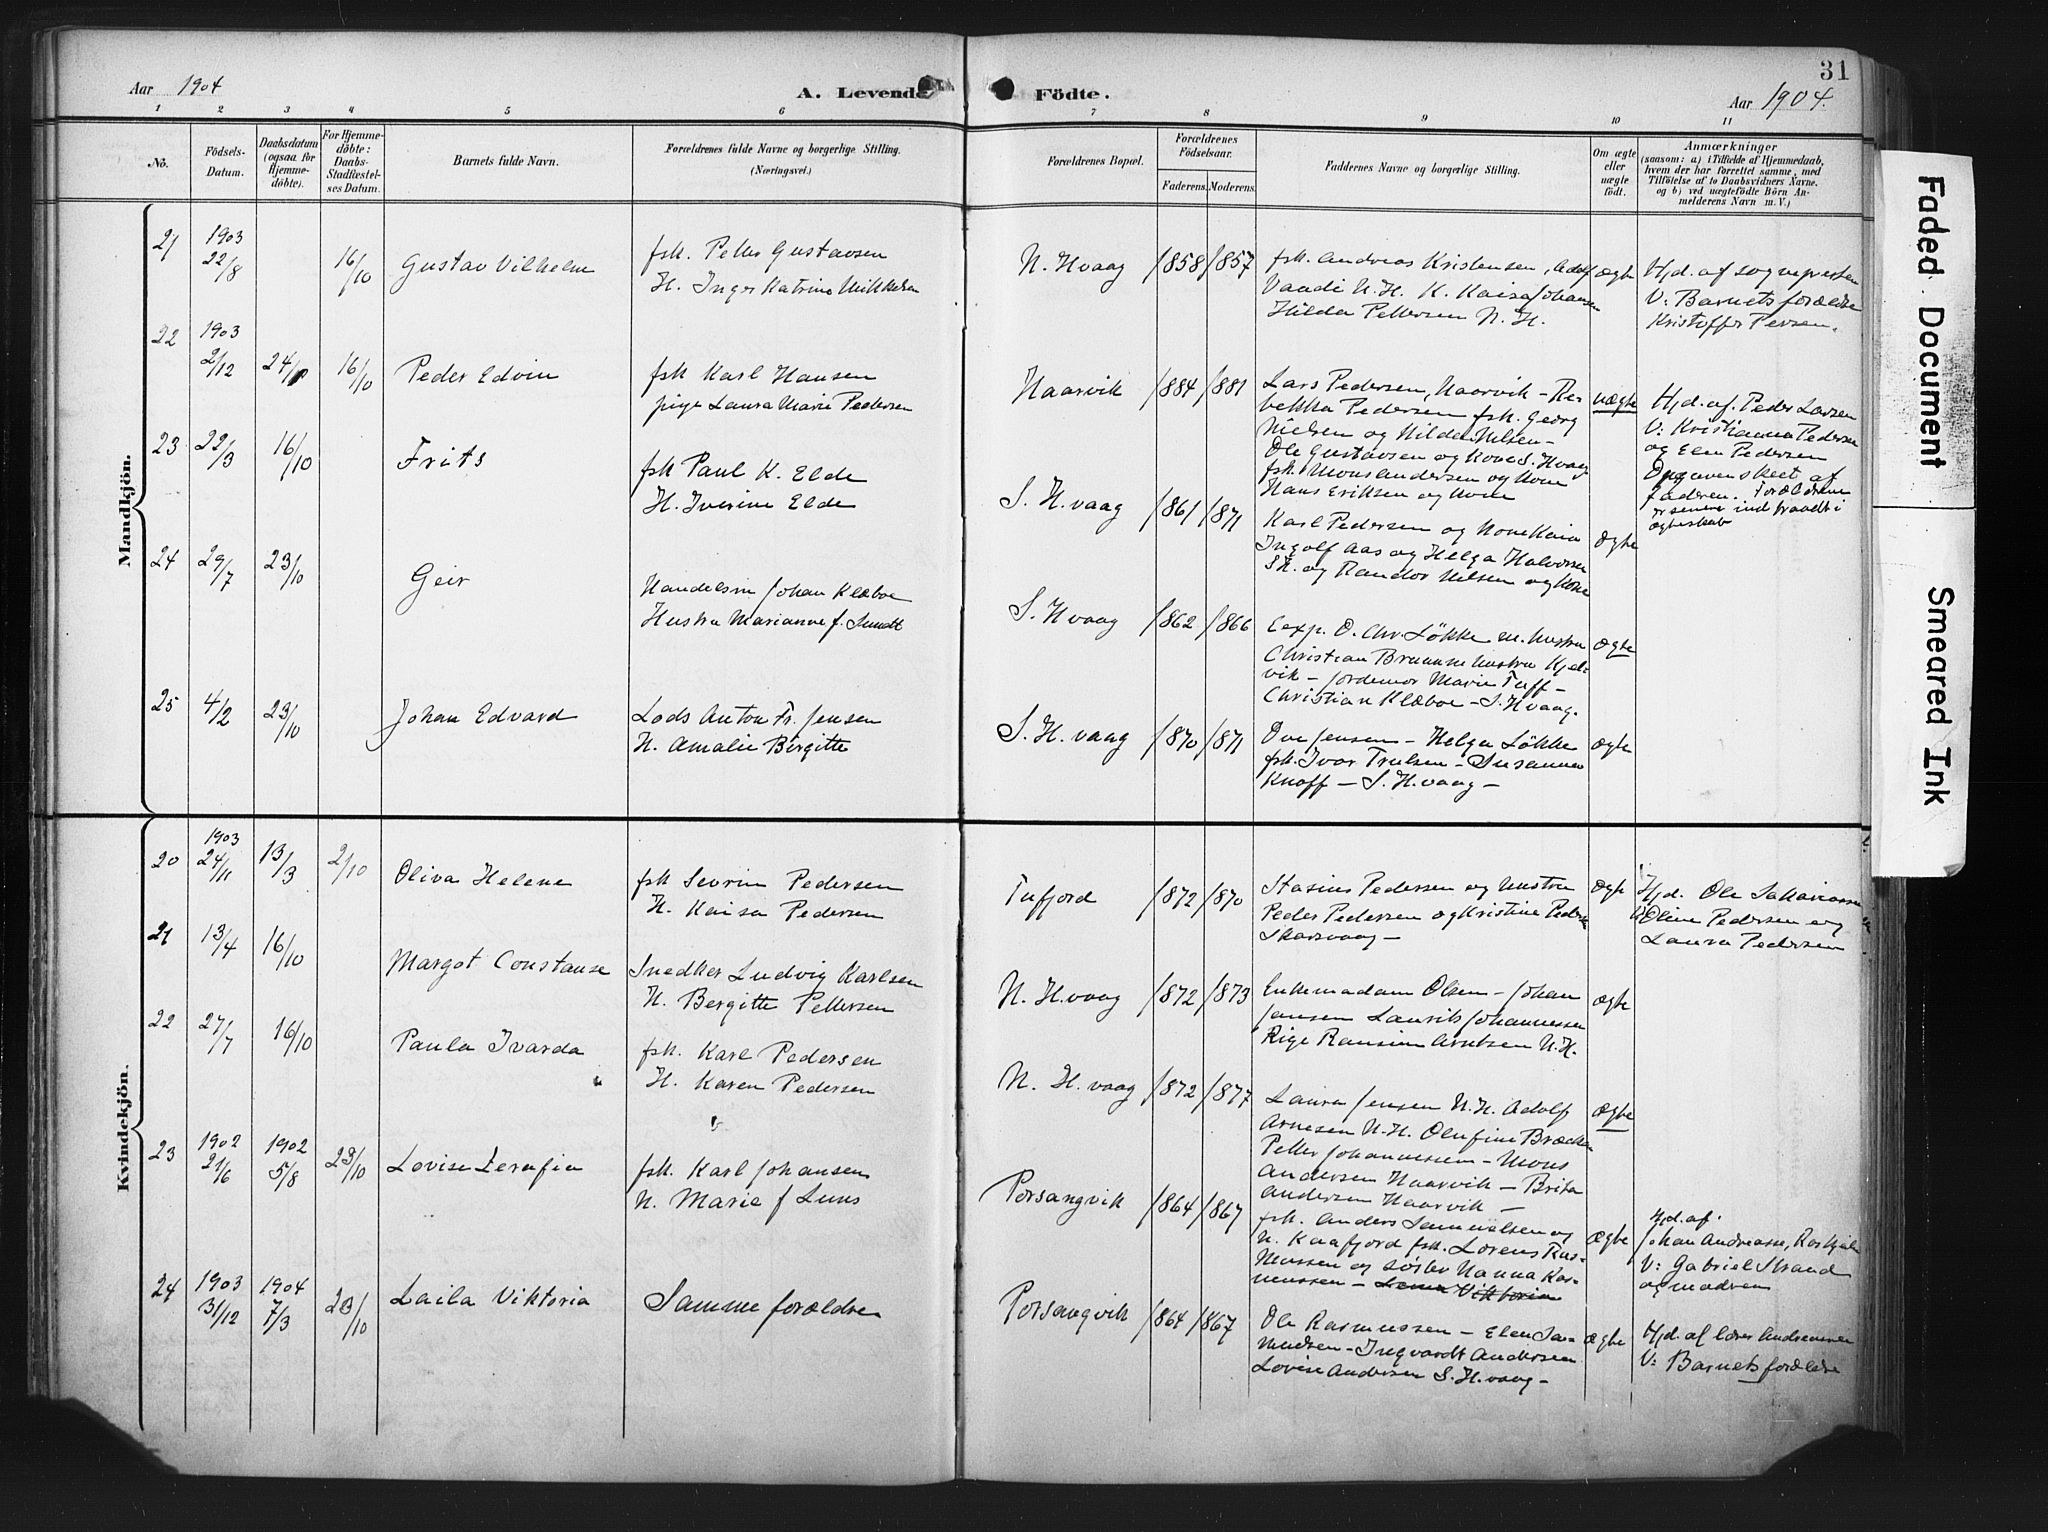 31
Aar 1904
A. Levende Födte.
Aar 1904.
1 2 3 4 5 6 7 8 9 10 11
No.
Födsels-Datum.
Daabsdatum (ogsaa for Hjemme-döbte).
For Hjemme-döbte: Daabs-Stadfæstel-ses Datum.
Barnets fulde Navn.
Forældrenes fulde Navne og borgerlige Stilling.
(Næringsvei.)
Forældrenes Bopæl.
Forældrenes Födselsaar.
Faderens. Moderens.
Faddernes Navne og borgerlige Stilling.
Om ægte eller uægte født.
Anmærkninger
(saasom: a) i Tilfælde af Hjemmedaab,
hvem der har forrettet samme, med
Tilföielse af to Daabsvidners Navne.
og b) ved uægtefödte Börn An-
melderens Navn m. V.)
Mandkjön.
21 1903 22/8 16/10 Gustav Vilhelm
fsk. Petter Gustavsen
H. Inger Katrine Mikkelsen
N. Hvaag 1858 1857
fsk. Andreas Kristensen,
Vaadi N.H. K. Kaisa Johansen
Hilda Pettersen N.H.
ægte
Hjd. af sognepresten
V: Barnets forældre
Kristoffer Persen.
22 1903 2/12 24/ 16/10 Peder Edvin
fsk Karl Hansen
pige Laura Marie Pedersen
Kaarvik 1884 1881
Lars Pedersen, Kaarvik - Re-
bekka Pedersen fsk. Georg
Nielsen og Hilda Nilsen -
Ole Gustavsen og Kone S. Hvaag
fsk. Mons Andersen og Kone
Hans Eriksen og Kone
uægte
Hjd. af. Peder Larsen
V: Kristianna Pedersen
og Elen Pedersen
Opgaven skeet af
faderen. Forældrene
er senere indtraadt i
ægteskab
23 22/3 16/10 Frits
fsk Paul K. Elde
H. Iverine Elde
S. H.vaag 1861 1871
Karl Pedersen og Kone Kaia
Ingolf Aas og Helga Halvorsen
Sk. og Randor Nilsen og Kone
ægte
24 29/7 23/10 Geir
Handelsm Johan Klæboe
Hustru Marianne f. Sundt
S. Hvaag 1862 1866
Cexp. O. Chr. Løkke m. hustru
Christian Bruun m hustru Kjel-
vik - Jordemor Marie Tuff -
Christian Klæboe - S. Hvaag.
ægte
25 4/2 23/10 Johan Edvard
Lods Anton Fr. Jensen
H. Amalie Birgitte
S. H. vaag 1870 1871
Ove Jensen - Helga Løkke
fsk. Ivar Trulsen - Susanna
Knoff - S. H.vaag -
ægte
Kvindekjön.
20 1903 24/11 13/3 2/10 Oliva Helene
fsk Sevrin Pedersen
H. Kaisa Pedersen
Tufjord 1872 1870
Stasius Pedersen og hustru
Peder Pedersen og Kristine Pedersen
Skarsvaag -
ægte
Hjd. Ole Sakariassen
V: Oline Pedersen og
Laura Pedersen
21 13/4 16/10 Margot Constanse
Snedker Ludvig Karlsen
H. Bergitte Pettersen
N. H.vaag 1872 1873
Enkemadam Olsen - Johan
Jensen Laurits Johannessen
Pige Ransine Arntsen N.H.
ægte
22 27/7 16/10 Paula Ivarda
fsk. Karl Pedersen
H. Karen Pedersen
N. H. vaag 1872 1877
Laura Jensen N.H. Adolf
Arnesen N.H. Olufine Brækkan
Petter Johannessen - Mons
Andersen Kaarvik - Brita
Andersen Kaarvik -
ægte
23 1902 21/6 1902 5/8 23/10 Lovise Serafia
fsk. Karl Johansen
H. Marie f Luns
Porsangvik 1864 1867
fsk. Anders Samuelsen og
H. Kaafjord fsk. Lorens Ras-
mussen og søster Hanna Ras-
mussen - Lema Viktoria
ægte
Hjd. af.
Johan Andreasse,
V: Gabriel Strand
og madren
24 1903 31/12 1904 7/3 23/10 Laila Viktoria
Samme forældre
Porsangvik 1864 1867
Ole Rasmussen - Elen Sa-
muelsen - Ingvardt Andersen
Lovise Andersen S. H.vaag -
ægte
Hjd. af lærer Andreassen
V: Barnets forældre
Faded Document
Smeared Ink